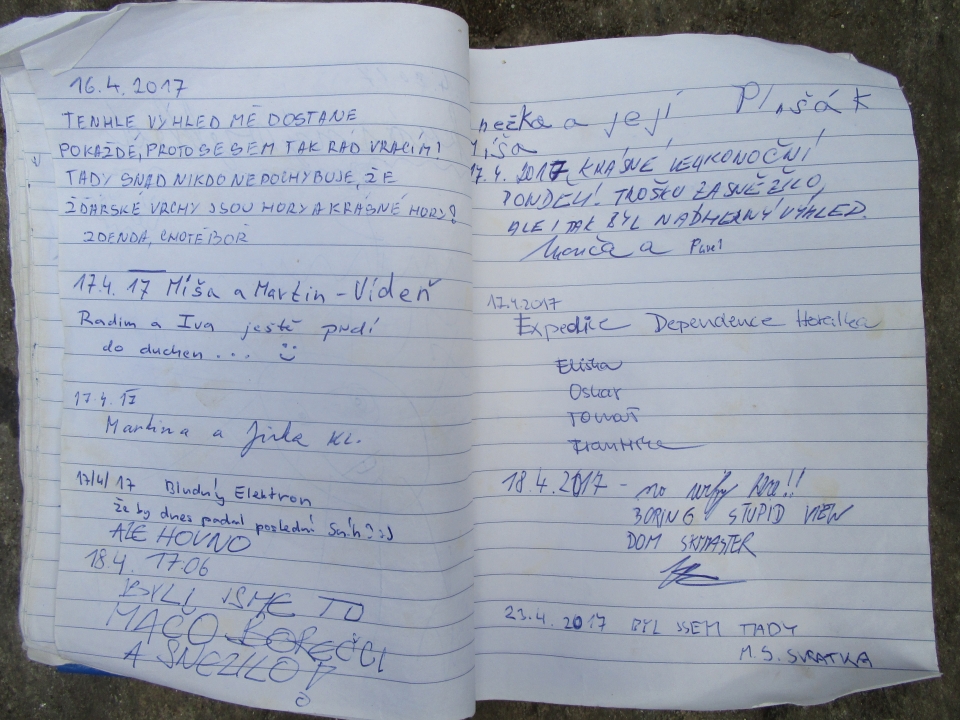 16.4.2017
TENHLE VÝHLED MĚ DOSTANE
POKAŽDÉ, PROTO SE SEM TAK RÁD VRACÍM!
TADY SNAD NIKDO NEPOCHYBUJE, ŽE
ŽĎÁRSKÉ VRCHY JSOU HORY A KRÁSNÉ HORY!
ZDENDA, CHOTĚBOŘ
17.4. 17 Míša a Martin - Vídeň
Radim a Iva ještě
do duchen... :)
17.4.17
Martina a Jirka Kl.
17/4/17 Bludný Elektron
že by dnes padal poslední sníh? :)
ALE HOVNO
18.4. 17:06
BYLI JSME TU
MAČO
A SNĚŽILO
nežka a její
Míša
17.4.2017 KRÁSNÉ VELIKONOČNÍ
PONDĚLÍ! TROŠKU ZASNĚŽILO,
ALE I TAK BYL NÁDHERNÝ VÝHLED.
a Pavel
17.4.2017
Expedice Dependence
Eliška
Oskar
Tomáš
Františka
18.4.2017 - no here!!
BORING STUPID VIEW
DOM
23.4.2017 BYL JSEM TADY
M.S. SVRATKA